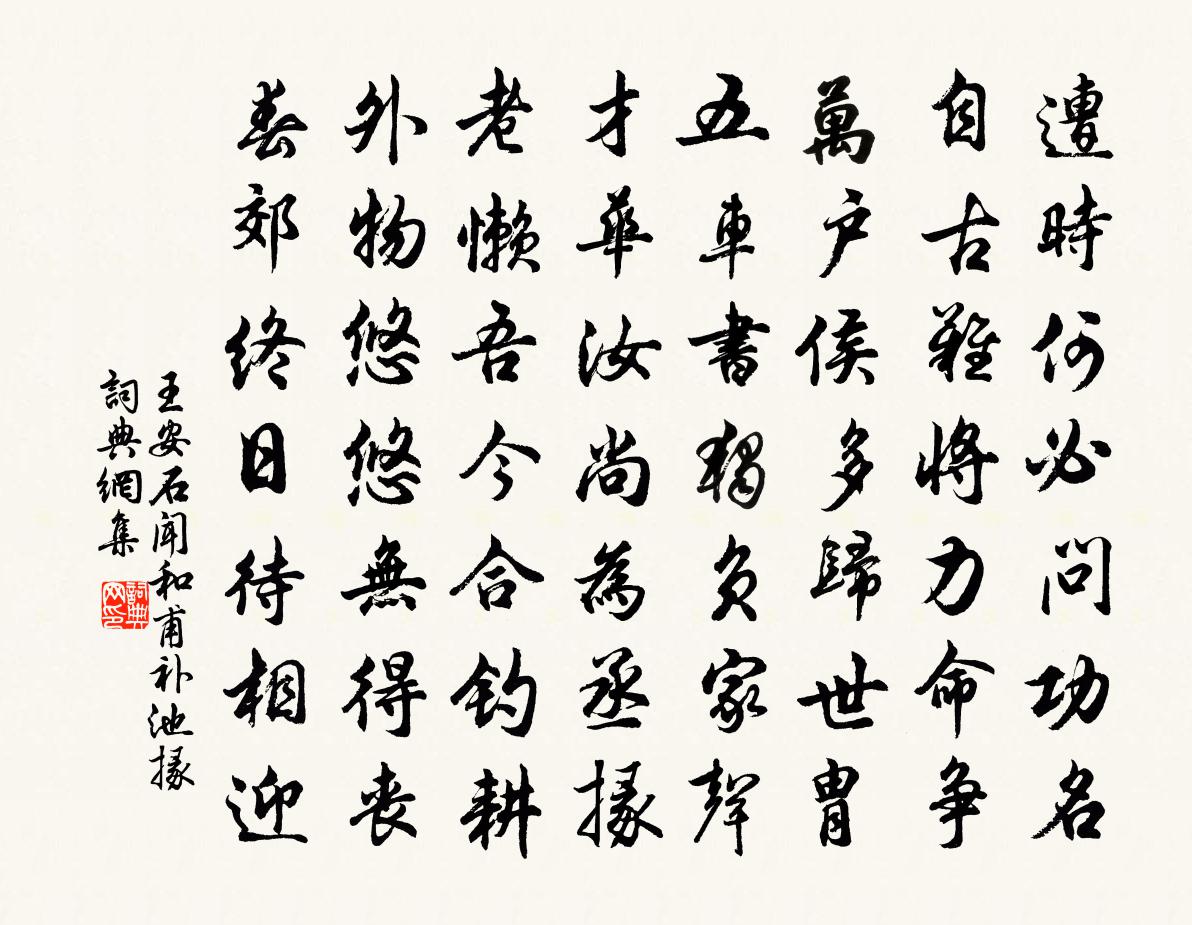 遭時何必問功名
自古難將力命爭
萬户侯多歸世胄
五車書獨負家聲
才華汝尚為丞掾
老懶吾今合釣耕
外物悠悠無得喪
春郊終日待相迎
王安石聞和甫补池掾
詞典網集
詞典
网印